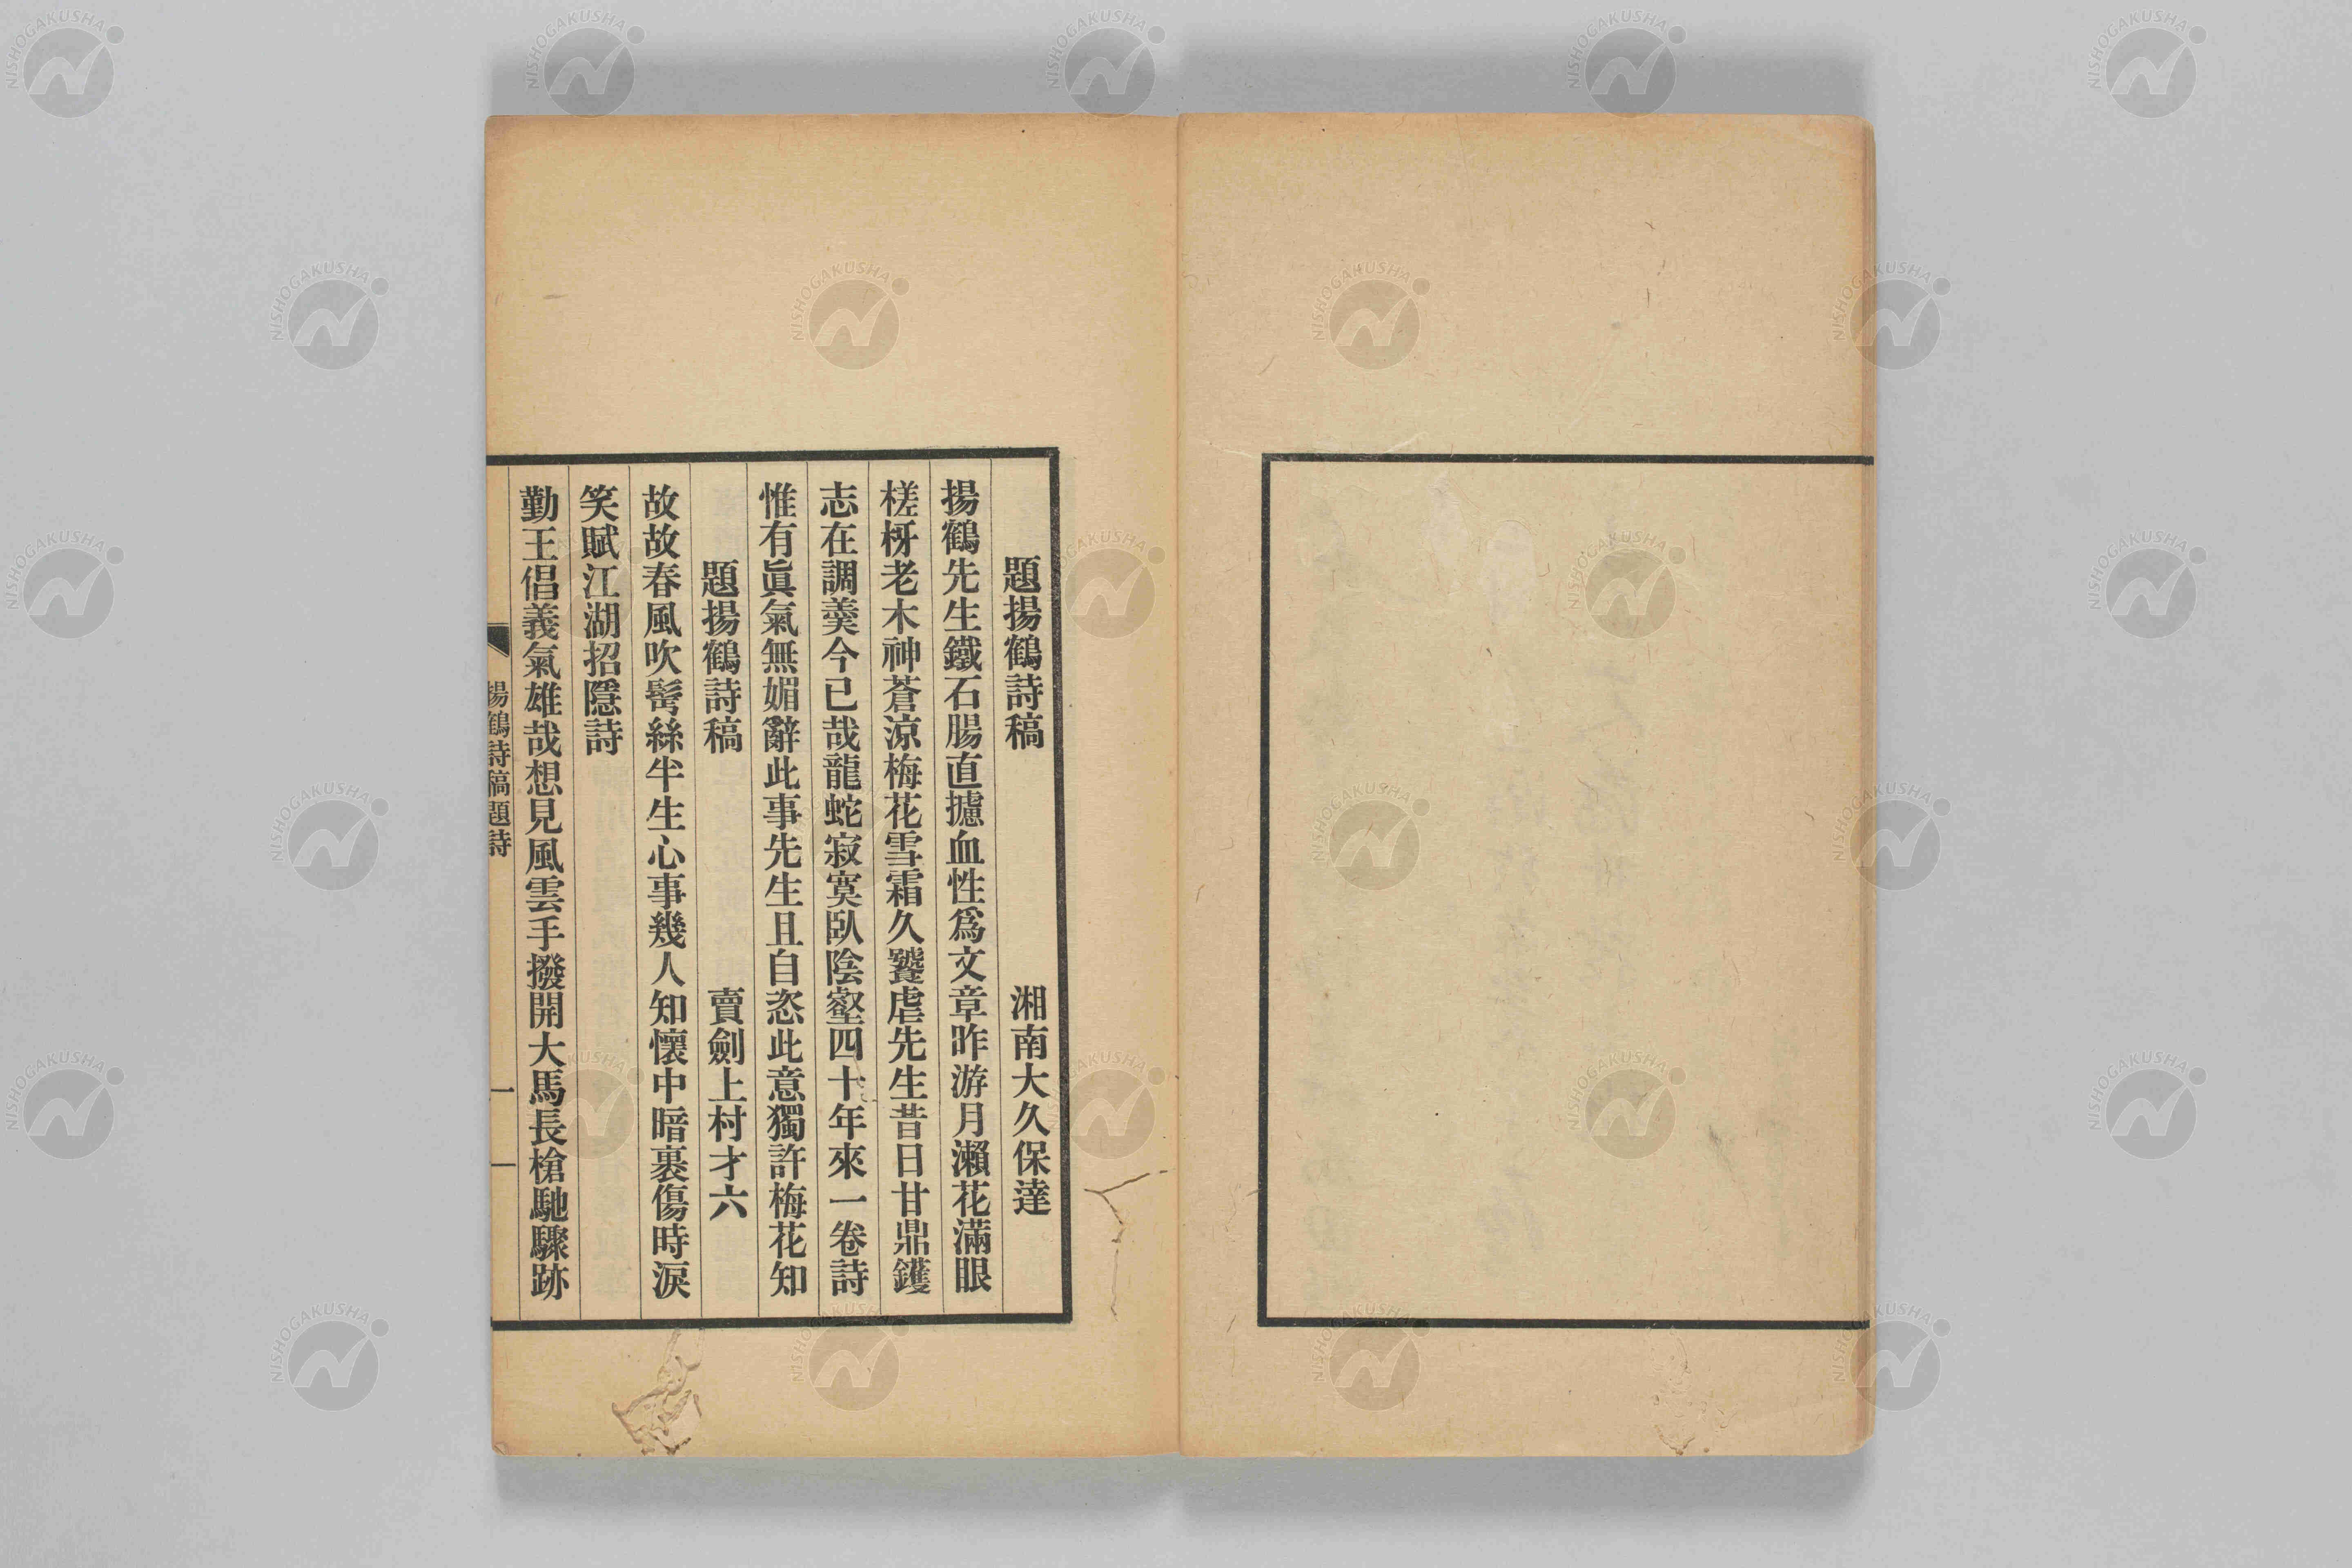 題揚鶴詩稿 湘南大久保達
揚鶴先生鐵石腸直攄血性爲文章昨游月瀨花滿眼
槎枒老木神蒼涼梅花雪霜久饕虐先生昔日甘鼎鑊
志在調羹今已哉龍蛇寂寞臥陰壑四十年來一卷詩
惟有眞氣無媚辭此事先生且自恣此意獨許梅花知
題揚鶴詩稿 賣劍上村才六
故故春風吹鬢絲半生心事幾人知懷中暗裹傷時淚
笑賦江湖招隱詩
勤王倡義氣雄哉想見風雲手撥開大馬長槍馳驟跡
揚鶴詩稿題詩 一
NISHOGAKUSHA